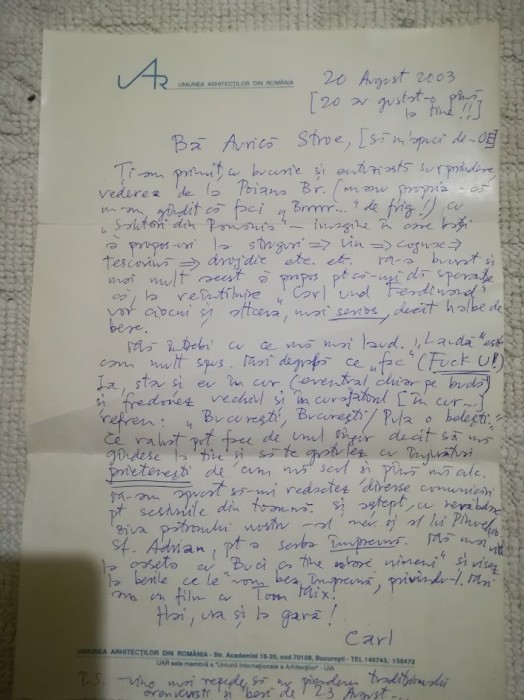 UAR UNIUNEA ARHITECȚILOR DIN ROMÂNIA
20 August 2003
[20 au gustat-o până
la tine!!]
Bă Avrică Stroe,
Ți-am primit, cu bucurie și surprindere,
vederea de la Poiana Br. (m-am
m-am gîndit că faci „Brrrr..." de frig!) cu
„Salutări din Romania" – imagine în care bați
à propos-uri la struguri ⇒ vin ⇒ ⇒
tescovină ⇒ drojdie etc. etc. M-a bucurat și
mai mult acest à propos pt că-mi dă speranțe
că, la reîntîlnire „Carl und Ferdinand"
vor ciocni și altceva, mai serios, decît halbe de
bere.
Mă întrebi cu ce mă mai laud. „Laudă" este
cam mult spus. Mai degrabă ce „fac" (Fuck U!)
Ia, stau și eu în cur (eventual chiar pe budă)
și fredonez vechiul și [în cur...]
refren: „București, București / Pula o belești."
Ce rahat pot face de unul singur decît să mă
gîndesc la tine și să te gratulez cu înjurături
prietenești de cum mă scol și pînă mă culc.
M-am apucat să-mi redactez diverse comunicări
pt sesiunile din toamnă. Și aștept, cu nerăbdare
ziua patronului nostru – al meu și al lui
Sf. Adrian, pt a serba împreună. Mă mai uit
la caseta cu „Buci ca tine n-are nimeni" și visez
la berile ce le vom bea împreună, privindu-l. Mai
am un film cu Tom Mix!
Hai, ura și la gară!
Carl
UNIUNEA ARHITECȚILOR DIN ROMÂNIA - Str. Academiei 18-20, cod 70109, București - TEL 140743; 156472
UAR este membră a "Uniunii Internaționale a Arhitecților" - UIA
P.S. – Vino mai repede, să nu pierdem tradiționalii
crenvurști și beri de 23 August.